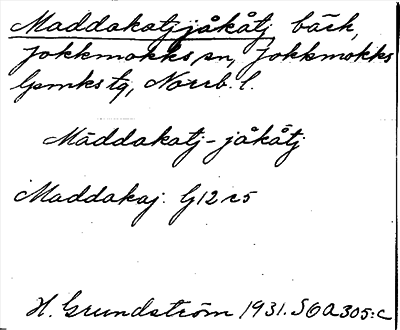 Maddakatjjåkåtj bäck,
Jokkmokks sn, Jokkmokks
lpmks tg, Norrb. l.
Māddakatj-jåkåtj
Maddakaj. G12 c5
H. Grundström 1931. SOA 305:c